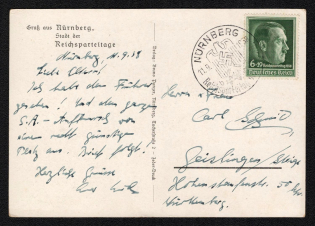 Gruß aus Nürnberg,
Stadt der
Reichsparteitage
Nürnberg, 11.9.38
Liebe Eltern!
Ich habe den Führer
gesehen! Und den ganzen
S.A.-Aufmarsch von
einem sehr günstigen
Platz aus. Brief folgt!
Herzliche Grüße
NÜRNBERG
11.
6+19
Deutsches Reich
Herrn u. Frau
Carl
Geislingen/Steige
Hohenstaufenstr.
Württemberg.